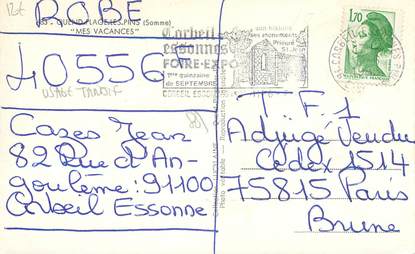 12€
ROBE
83 - QUEND-PLAGE-LES-PINS (Somme)
"MES VACANCES"
40556
USAGE TARDIF
Corbeil
essonnes
FOIRE-EXPO
1ère quinzaine
de SEPTEMBRE
son histoire
ses monuments
Prieuré
St. J
CORBEIL ESSONNES
1,70
Cazes Jean
82 Rue d'An-
goulème: 91100
Corbeil Essonne
T.F.1
Adjugé Vendu
Cedex 1514
75815 Paris
Brune